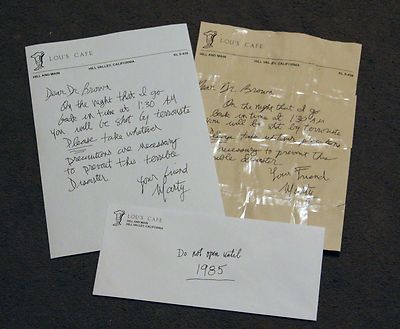 LOU'S CAFE
HILL AND MAIN
HILL VALLEY, CALIFORNIA
KL 5-
Dear Dr Brown
On the night that I go
back in time at 1:30 AM
you will be shot by terrorists
Please take whatever
precautions are necessary
to prevent this terrible
Disaster
Your Friend
Marty
LOU'S CAFE
HILL AND MAIN
HILL VALLEY, CALIFORNIA
KL 5-
Dear Dr. Brown
On the night that I go
back in time at 1:30 AM
you will be shot by terrorists
Please take
necessary to prevent this
disaster
Your Friend
Marty
LOU'S CAFE
HILL AND MAIN
HILL VALLEY, CALIFORNIA
Do not open until
1985